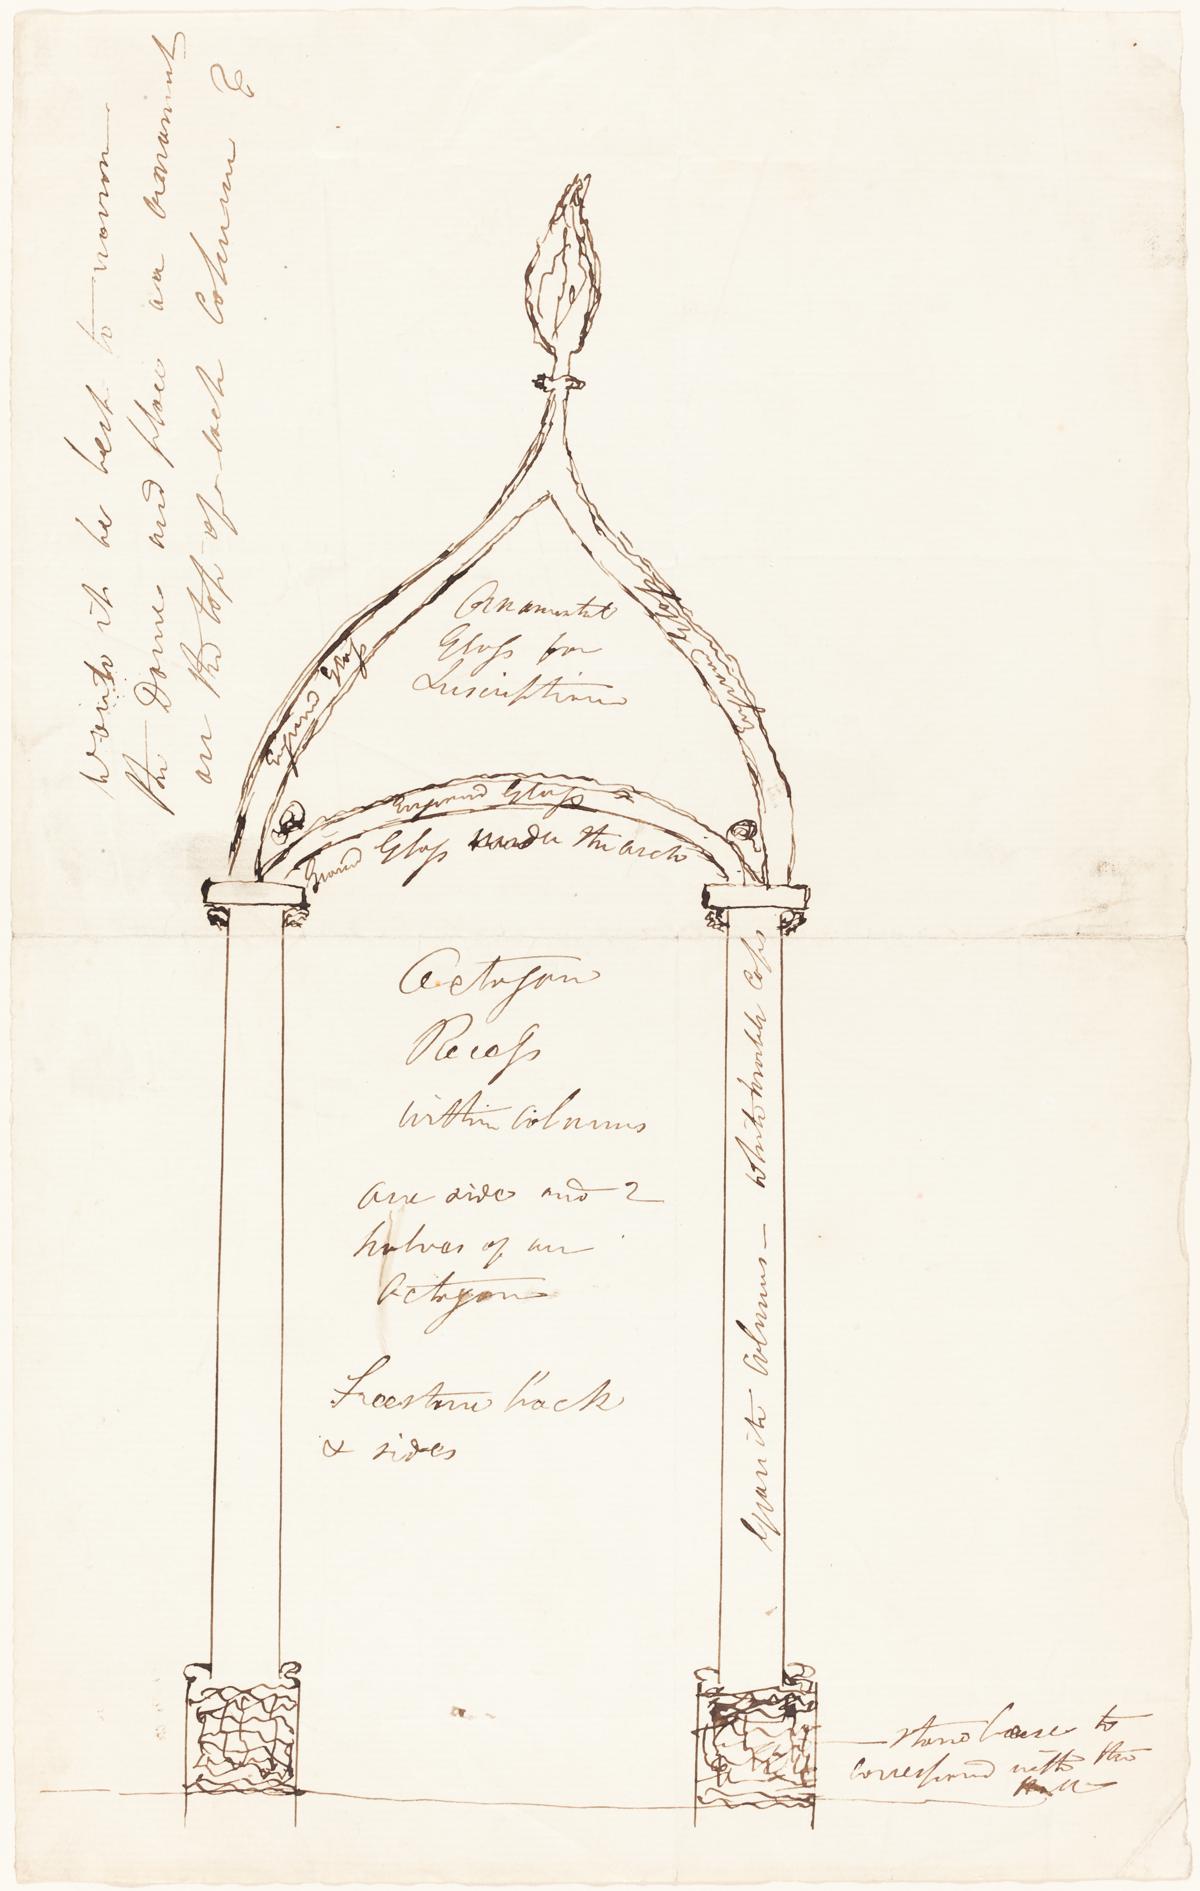 Would it be best to narrow
the Dome and place an ornament
on the top of each column E
Ornamental
Glass for
Inscriptions
Ground Glass
Ground Glass
Ground Glass
Ground Glass under the arch
Octagon
Recess
within columns
one side and 2
halves of an
Octagon
Freestone back
& sides
Granite Columns — White marble Caps
stone base to
correspond with the
Hall